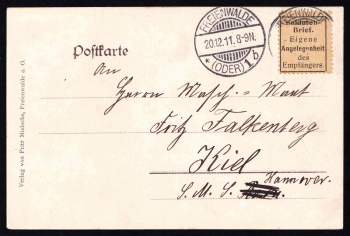 Postkarte
FREIENWALDE
20.12.11.8-9N.
* (ODER) 1b
FREIENWALDE
Soldaten-
Brief.
Eigene
Angelegenheit
des
Empfängers.
An
Herrn Masch.-Maat
Fritz Falkenberg
Kiel
Hannover.
S. M. S.
Verlag von Fritz Mielecke, Freienwalde a. O.